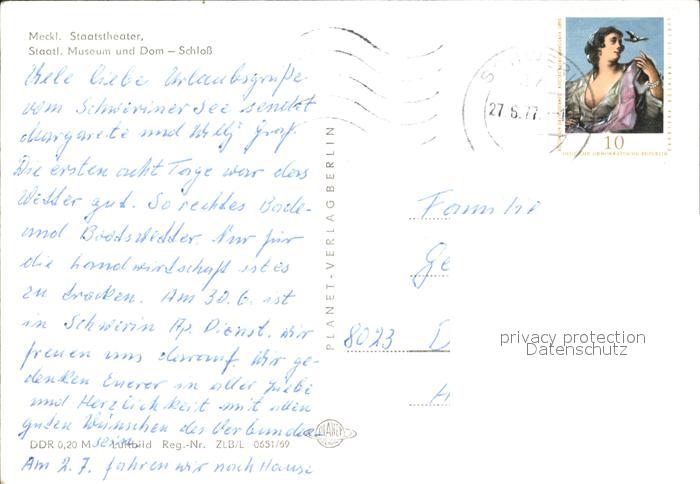 Meckl. Staatstheater,
Staatl. Museum und Dom – Schloß
Viele liebe Urlaubsgrüße
vom Schweriner See sendet
Margarete und Willy Graf.
Die ersten acht Tage war das
Wetter gut. So rechtes Bade-
und Bootswetter. Nur für
die Landwirtschaft ist es
zu trocken. Am 30.6. ist
in Schwerin Ap. Dienst. Wir
freuen uns darauf. Wir ge-
denken Euerer in aller Liebe
und Herzlichkeit mit allen
guten Wünschen des Verbunden-
seins.
DDR 0,20 M Luftbild Reg.-Nr. ZLB/L 0651/69
Am 2.7. fahren wir nach Hause
PLANET-VERLAG BERLIN
PLANET
27.6.77
10
DEUTSCHE DEMOKRATISCHE REPUBLIK
Familie
Ge
8023 D
H
privacy protection
Datenschutz